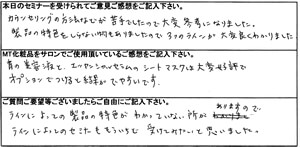 本日のセミナーを受けられてご意見ご感想をご記入下さい。
カウンセリングの方法などが苦手でしたので大変参考になりました。
製品の特色をしらない物もありましたので3つのラインが大変良くわかりました
MT化粧品をサロンでご使用頂いているご感想をご記入下さい。
首の美容液で、エッセンシャルセラムのシートマスクは大変好評で
オプションでつけると結果がでやすいです。
ご質問ご要望等ございましたらご自由にご記入下さい。
ラインによっての製品の特色がわかっていない所がありますので、
ラインによってのセミナーももういちど受けてみたいと思いました。